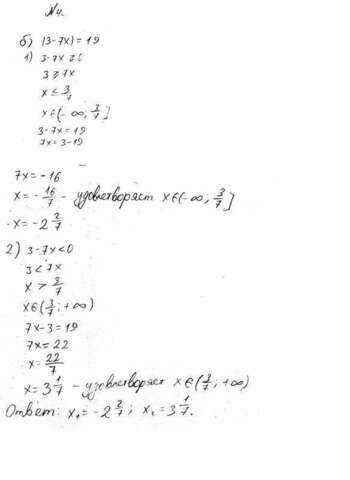 №4.
б) |3-7x|=19
1) 3-7x ≥ 0
3 ≥ 7x
x ≤ 3/7
x∈(-∞; 3/7]
3-7x=19
7x=3-19
7x=-16
x=-16/7 - удовлетворяет x∈(-∞; 3/7]
x=-2 2/7
2) 3-7x<0
3<7x
x > 3/7
x∈(3/7; +∞)
7x-3=19
7x=22
x=22/7
x=3 1/7 - удовлетворяет x∈(3/7; +∞)
Ответ: x₁=-2 2/7; x₂=3 1/7.